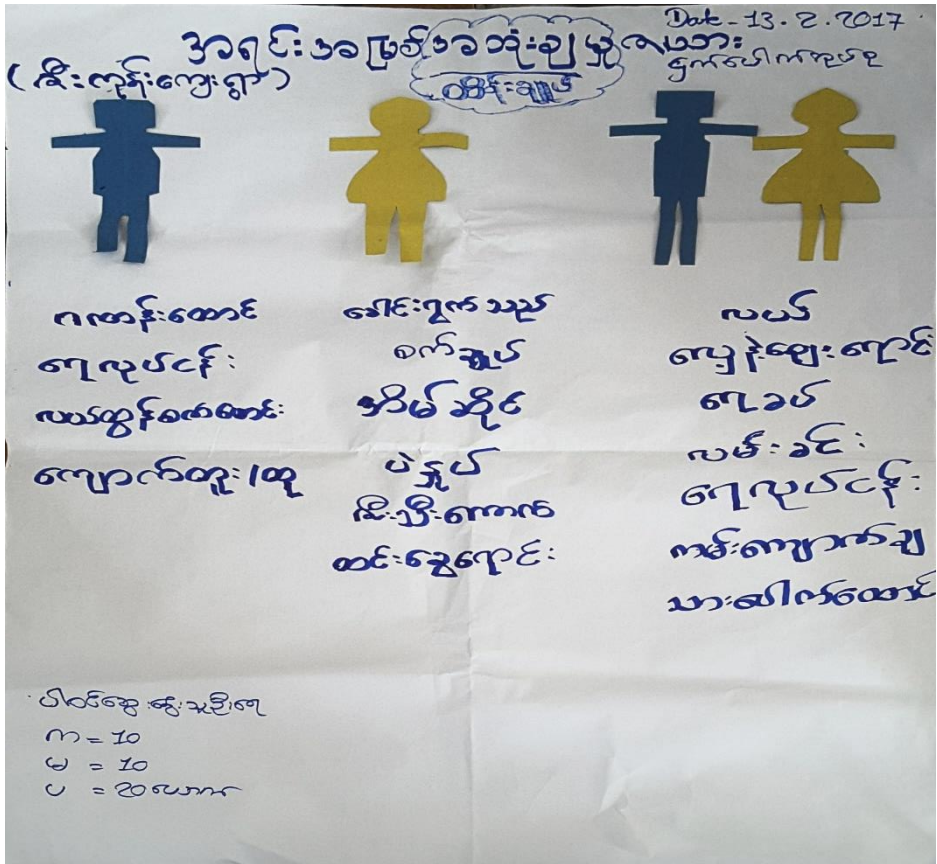 Date - 13.2.2017
အရင်းအမြစ်အသုံးချမှုဇယား
(ဇီးကုန်းကျေးရွာ)
ဝါးစိမ်းချုပ်
ဂဏန်းထောင်
ရေလုပ်ငန်း
လယ်ထွန်စက်မောင်း
ကျောက်ထူး/ထု
ခေါင်းရွက်သည်
စက်ချုပ်
အိမ်ဆိုင်
ပဲနှုပ်
ဇီးသီးကောက်
ထင်းခွေရောင်း
လယ်
လှေနဲ့ဈေးရောင်း
ရေခပ်
လမ်းခင်း
ရေလုပ်ငန်း
ကမ်းကျောက်ချ
သားပေါက်ထောင်
ပါဝင်ဆွေးနွေးသူဦးရေ
က = 10
မ = 10
ပ = 20 ယောက်